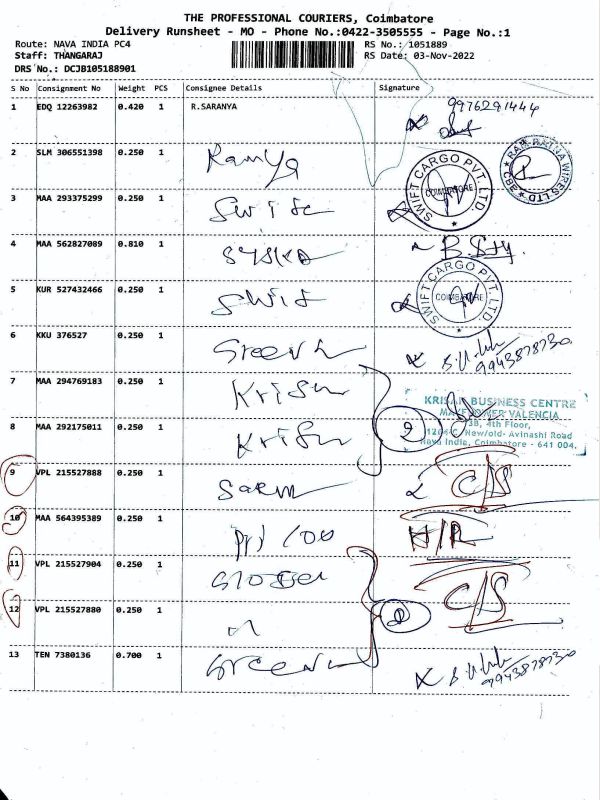 THE PROFESSIONAL COURIERS, Coimbatore
Delivery Runsheet - MO - Phone No.:0422-3505555 - Page No.:1
Route: NAVA INDIA PC4
RS No.: 1051889
Staff: THANGARAJ
RS Date: 03-Nov-2022
DRS No.: DCJB105188901
S No Consignment No Weight PCS Consignee Details Signature
1 EDQ 12263982 0.420 1 R.SARANYA 9976291444
2 SLM 306551398 0.250 1 Ramya
RAM RATNA WIRES LTD CBE
3 MAA 293375299 0.250 1 Swift
SWIFT CARGO PVT. LTD. COIMBATORE
4 MAA 562827089 0.810 1
5 KUR 527432466 0.250 1 Swift
SWIFT CARGO PVT. LTD. COIMBATORE
6 KKU 376527 0.250 1 Greens 9943878730
7 MAA 294769183 0.250 1 Krish
KRISHN BUSINESS CENTRE
MAYFLOWER VALENCIA
3B, 4th Floor,
New/old- Avinashi Road
Nava India, Coimbatore - 641 004.
8 MAA 292175011 0.250 1 Krish 2
9 VPL 215527888 0.250 1 C/S
10 MAA 564395389 0.250 1 H/R
11 VPL 215527904 0.250 1 C/S
12 VPL 215527880 0.250 1
13 TEN 7380136 0.700 1 Greens 9943878730